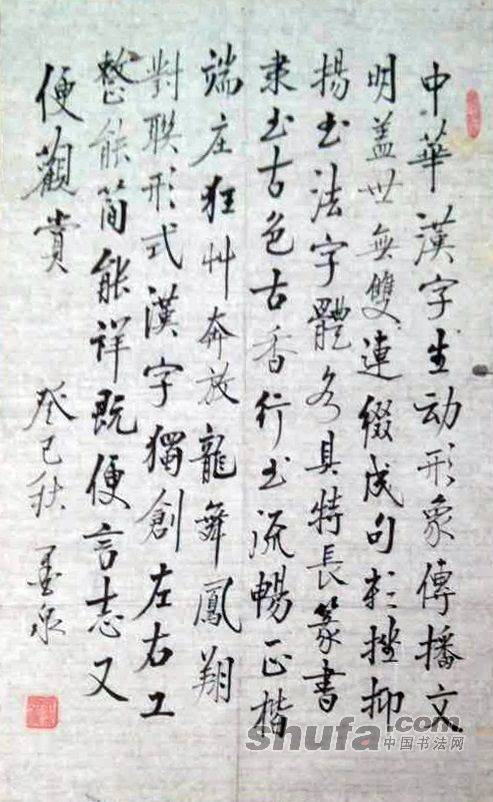 中華漢字生动形象傳播文
明盖世無雙連綴成句頓挫抑
揚书法字體各具特長篆書
隶书古色古香行书流暢正楷
端庄狂艸奔放龍舞鳳翔
對联形式漢字獨創左右工
整能简能祥既便言志又
便觀赏
癸巳秋 墨泉
shufa.com
中国书法网